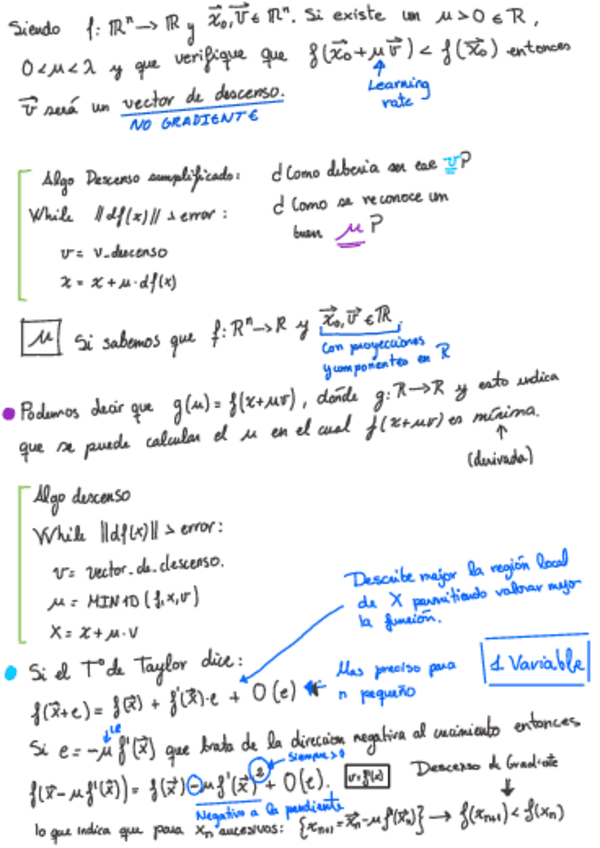 Siendo f: ℝⁿ → ℝ y x⃗₀, v⃗ ∈ ℝⁿ. Si existe un μ > 0 ∈ ℝ,
0 < μ < λ y que verifique que f(x⃗₀ + μv⃗) < f(x⃗₀) entonces
v⃗ será un vector de descenso.
Learning rate
NO GRADIENTE
Algo Descenso simplificado:
While ||df(x)|| > error:
v = v_descenso
x = x + μ·df(x)
¿Como deberia ser ese v?
¿Como se reconoce un
buen μ?
μ Si sabemos que f: ℝⁿ → ℝ y x⃗₀, v⃗ ∈ ℝ.
Con proyecciones
y componentes en ℝ
Podemos decir que g(μ) = f(x+μv), donde g: ℝ → ℝ y esto indica
que se puede calcular el μ en el cual f(x+μv) es mínima.
(derivada)
Algo descenso
While ||df(x)|| > error:
v = vector_de_descenso.
μ = MIN1D(f,x,v)
x = x + μ·v
Describe mejor la región local
de X permitiendo valorar mejor
la función.
Si el Tº de Taylor dice:
f(x⃗+e) = f(x⃗) + f'(x⃗)·e + O(e)
Mas preciso para
n pequeño
1 Variable
Si e = -μ f'(x⃗) que trata de la direccion negativa al crecimiento entonces
Siempre > 0
f(x⃗ - μ f'(x⃗)) = f(x⃗) - μ f'(x⃗)² + O(e).
Negativo a la pendiente
Descenso de Gradiente
lo que indica que para xₙ sucesivos: {xₙ₊₁ = x⃗ₙ - μ f'(x⃗ₙ)} → f(xₙ₊₁) < f(xₙ)